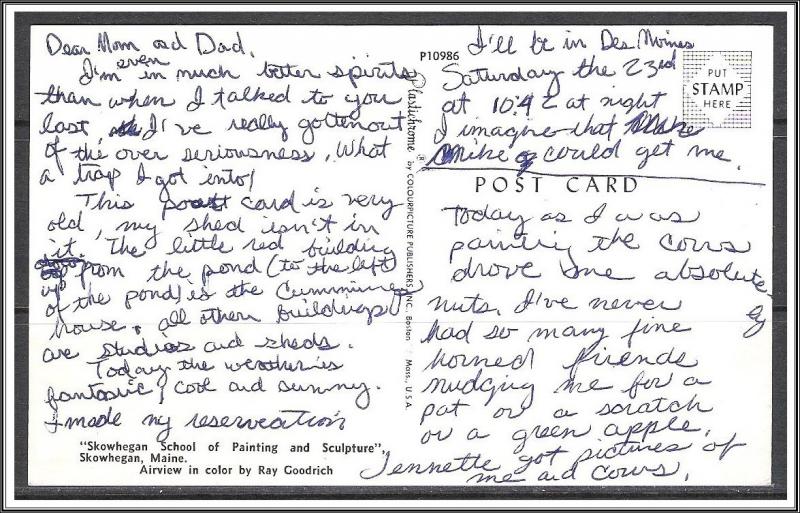 Dear Mom and Dad,
I'm even in much better spirits
than when I talked to you
last, I've really gotten out
of the over seriousness. What
a trap I got into!
This post card is very
old, my shed isn't in
it. The little red building
up from the pond (to the left
of the pond) is the Cummings
house, all other buildings
are studios and sheds.
Today the weather is
fantastic, cool and sunny.
I made my reservation
"Skowhegan School of Painting and Sculpture",
Skowhegan, Maine.
Airview in color by Ray Goodrich
P10986
Plastichrome ® by COLOURPICTURE PUBLISHERS, INC. Boston Mass., U.S.A.
I'll be in Des Moines
Saturday the 23rd
at 10:42 at night
I imagine that
Mike could get me.
PUT
STAMP
HERE
POST CARD
Today as I was
painting the cows
drove me absolute-
ly
nuts. I've never
had so many fine
horned friends
nudging me for a
pat or a scratch
or a green apple.
Jennette got pictures of
me and cows.